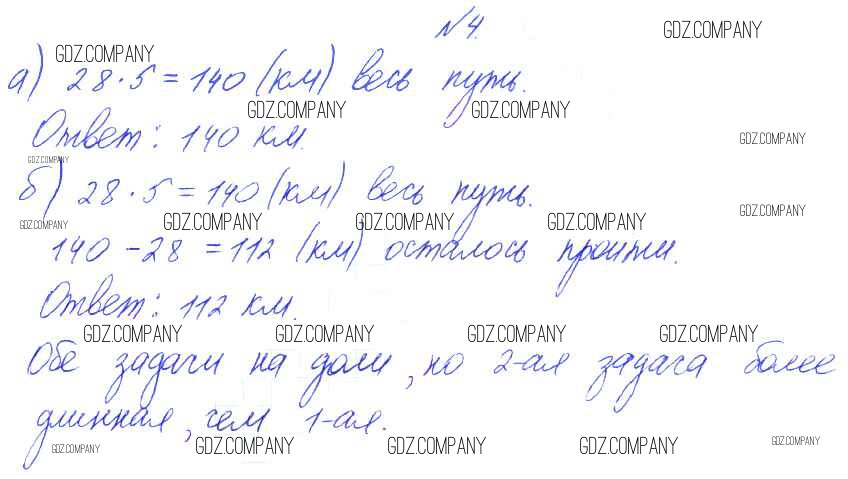 №4.
GDZ.COMPANY
GDZ.COMPANY
а) 28·5=140 (км) весь путь.
GDZ.COMPANY GDZ.COMPANY
Ответ: 140 км.
GDZ.COMPANY
GDZ.COMPANY
б) 28·5=140 (км) весь путь.
GDZ.COMPANY GDZ.COMPANY GDZ.COMPANY GDZ.COMPANY GDZ.COMPANY
140-28=112 (км) осталось пройти.
Ответ: 112 км.
GDZ.COMPANY GDZ.COMPANY GDZ.COMPANY GDZ.COMPANY
Обе задачи на доли, но 2-ая задача более
длинная, чем 1-ая.
GDZ.COMPANY GDZ.COMPANY GDZ.COMPANY GDZ.COMPANY GDZ.COMPANY